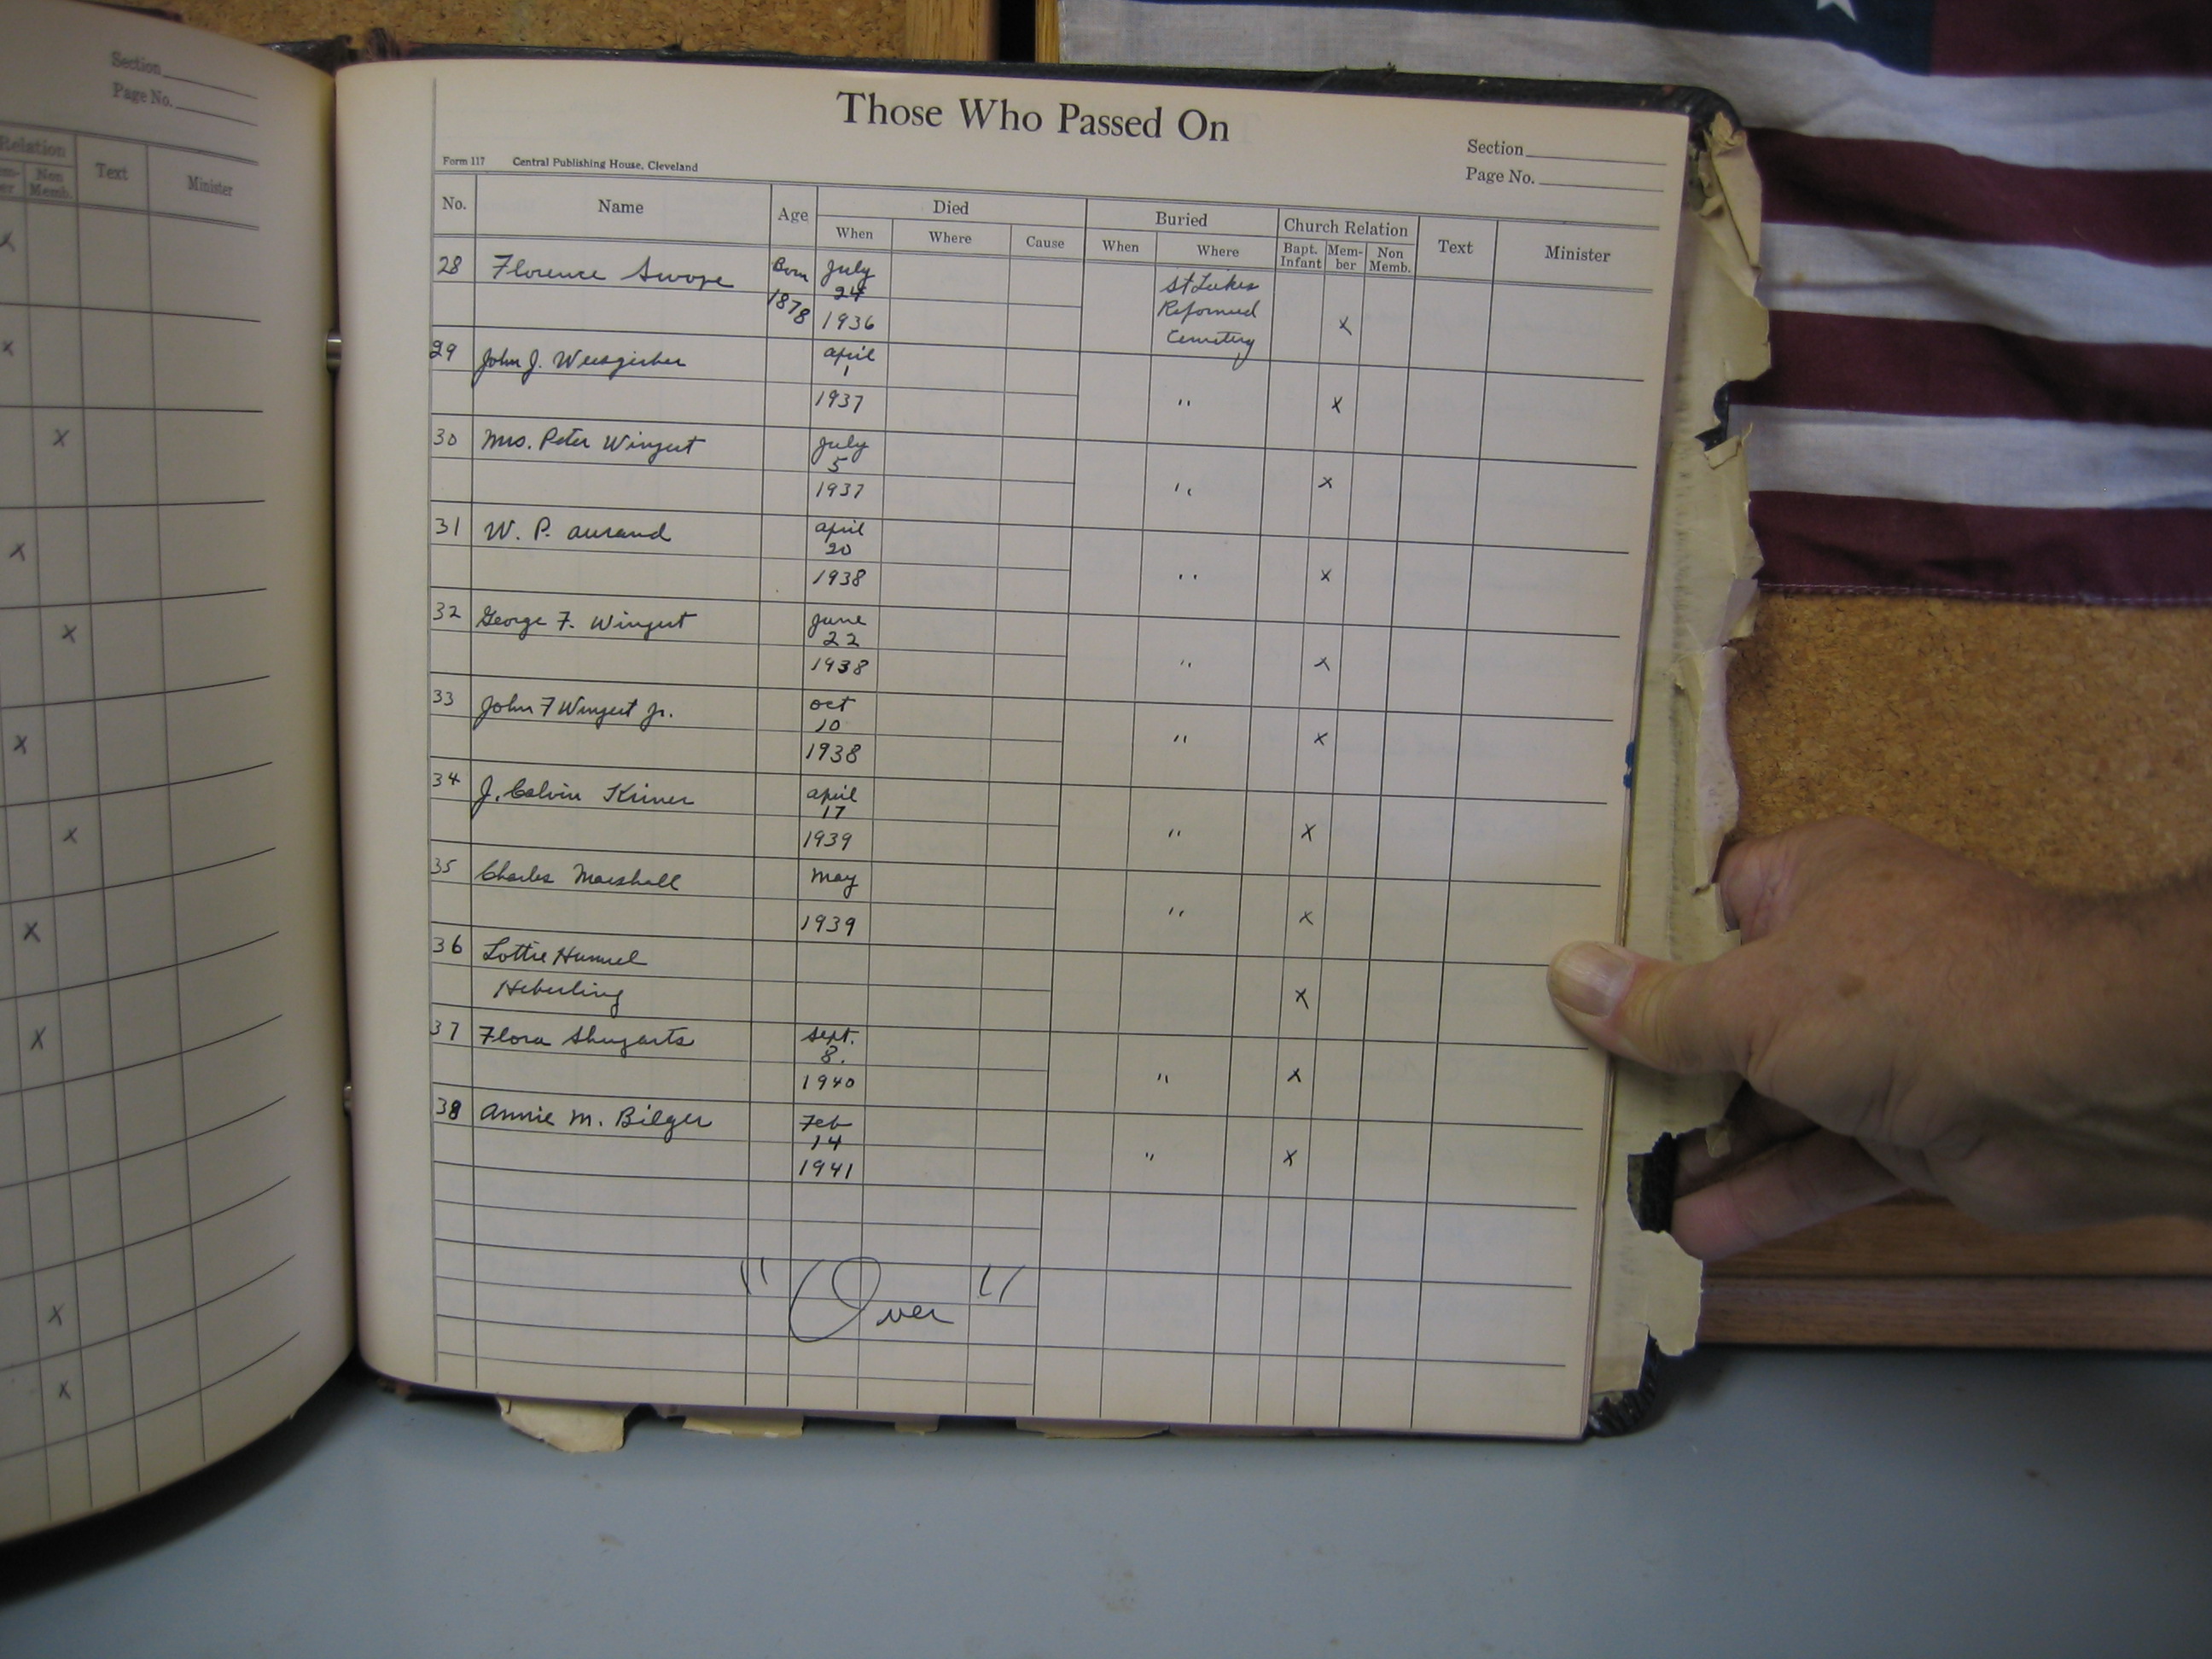 Section
Page No.
Relation
Non
Memb.
Text
Minister
x
x
x
x
x
x
x
x
x
x
x
Those Who Passed On
Section
Page No.
Form 117 Central Publishing House, Cleveland
No. Name Age Died Buried Church Relation Text Minister
When Where Cause When Where Bapt. Infant Mem-ber Non Memb.
28 Florence Swope Born July St Lukes
1878 24 Reformed
1936 Cemetery x
29 John J. Weisgerber April
1
1937 " x
30 Mrs. Peter Wingert July
5
1937 " x
31 W. P. Aurand April
20
1938 " x
32 George F. Wingert June
22
1938 " x
33 John F Wingert Jr. Oct
10
1938 " x
34 J. Calvin Kriner April
17
1939 " x
35 Charles Marshall May
1939 " x
36 Lottie Hummel
Heberling x
37 Flora Shugarts Sept.
8.
1940 " x
38 Annie M. Bilger Feb
14
1941 " x
"Over"